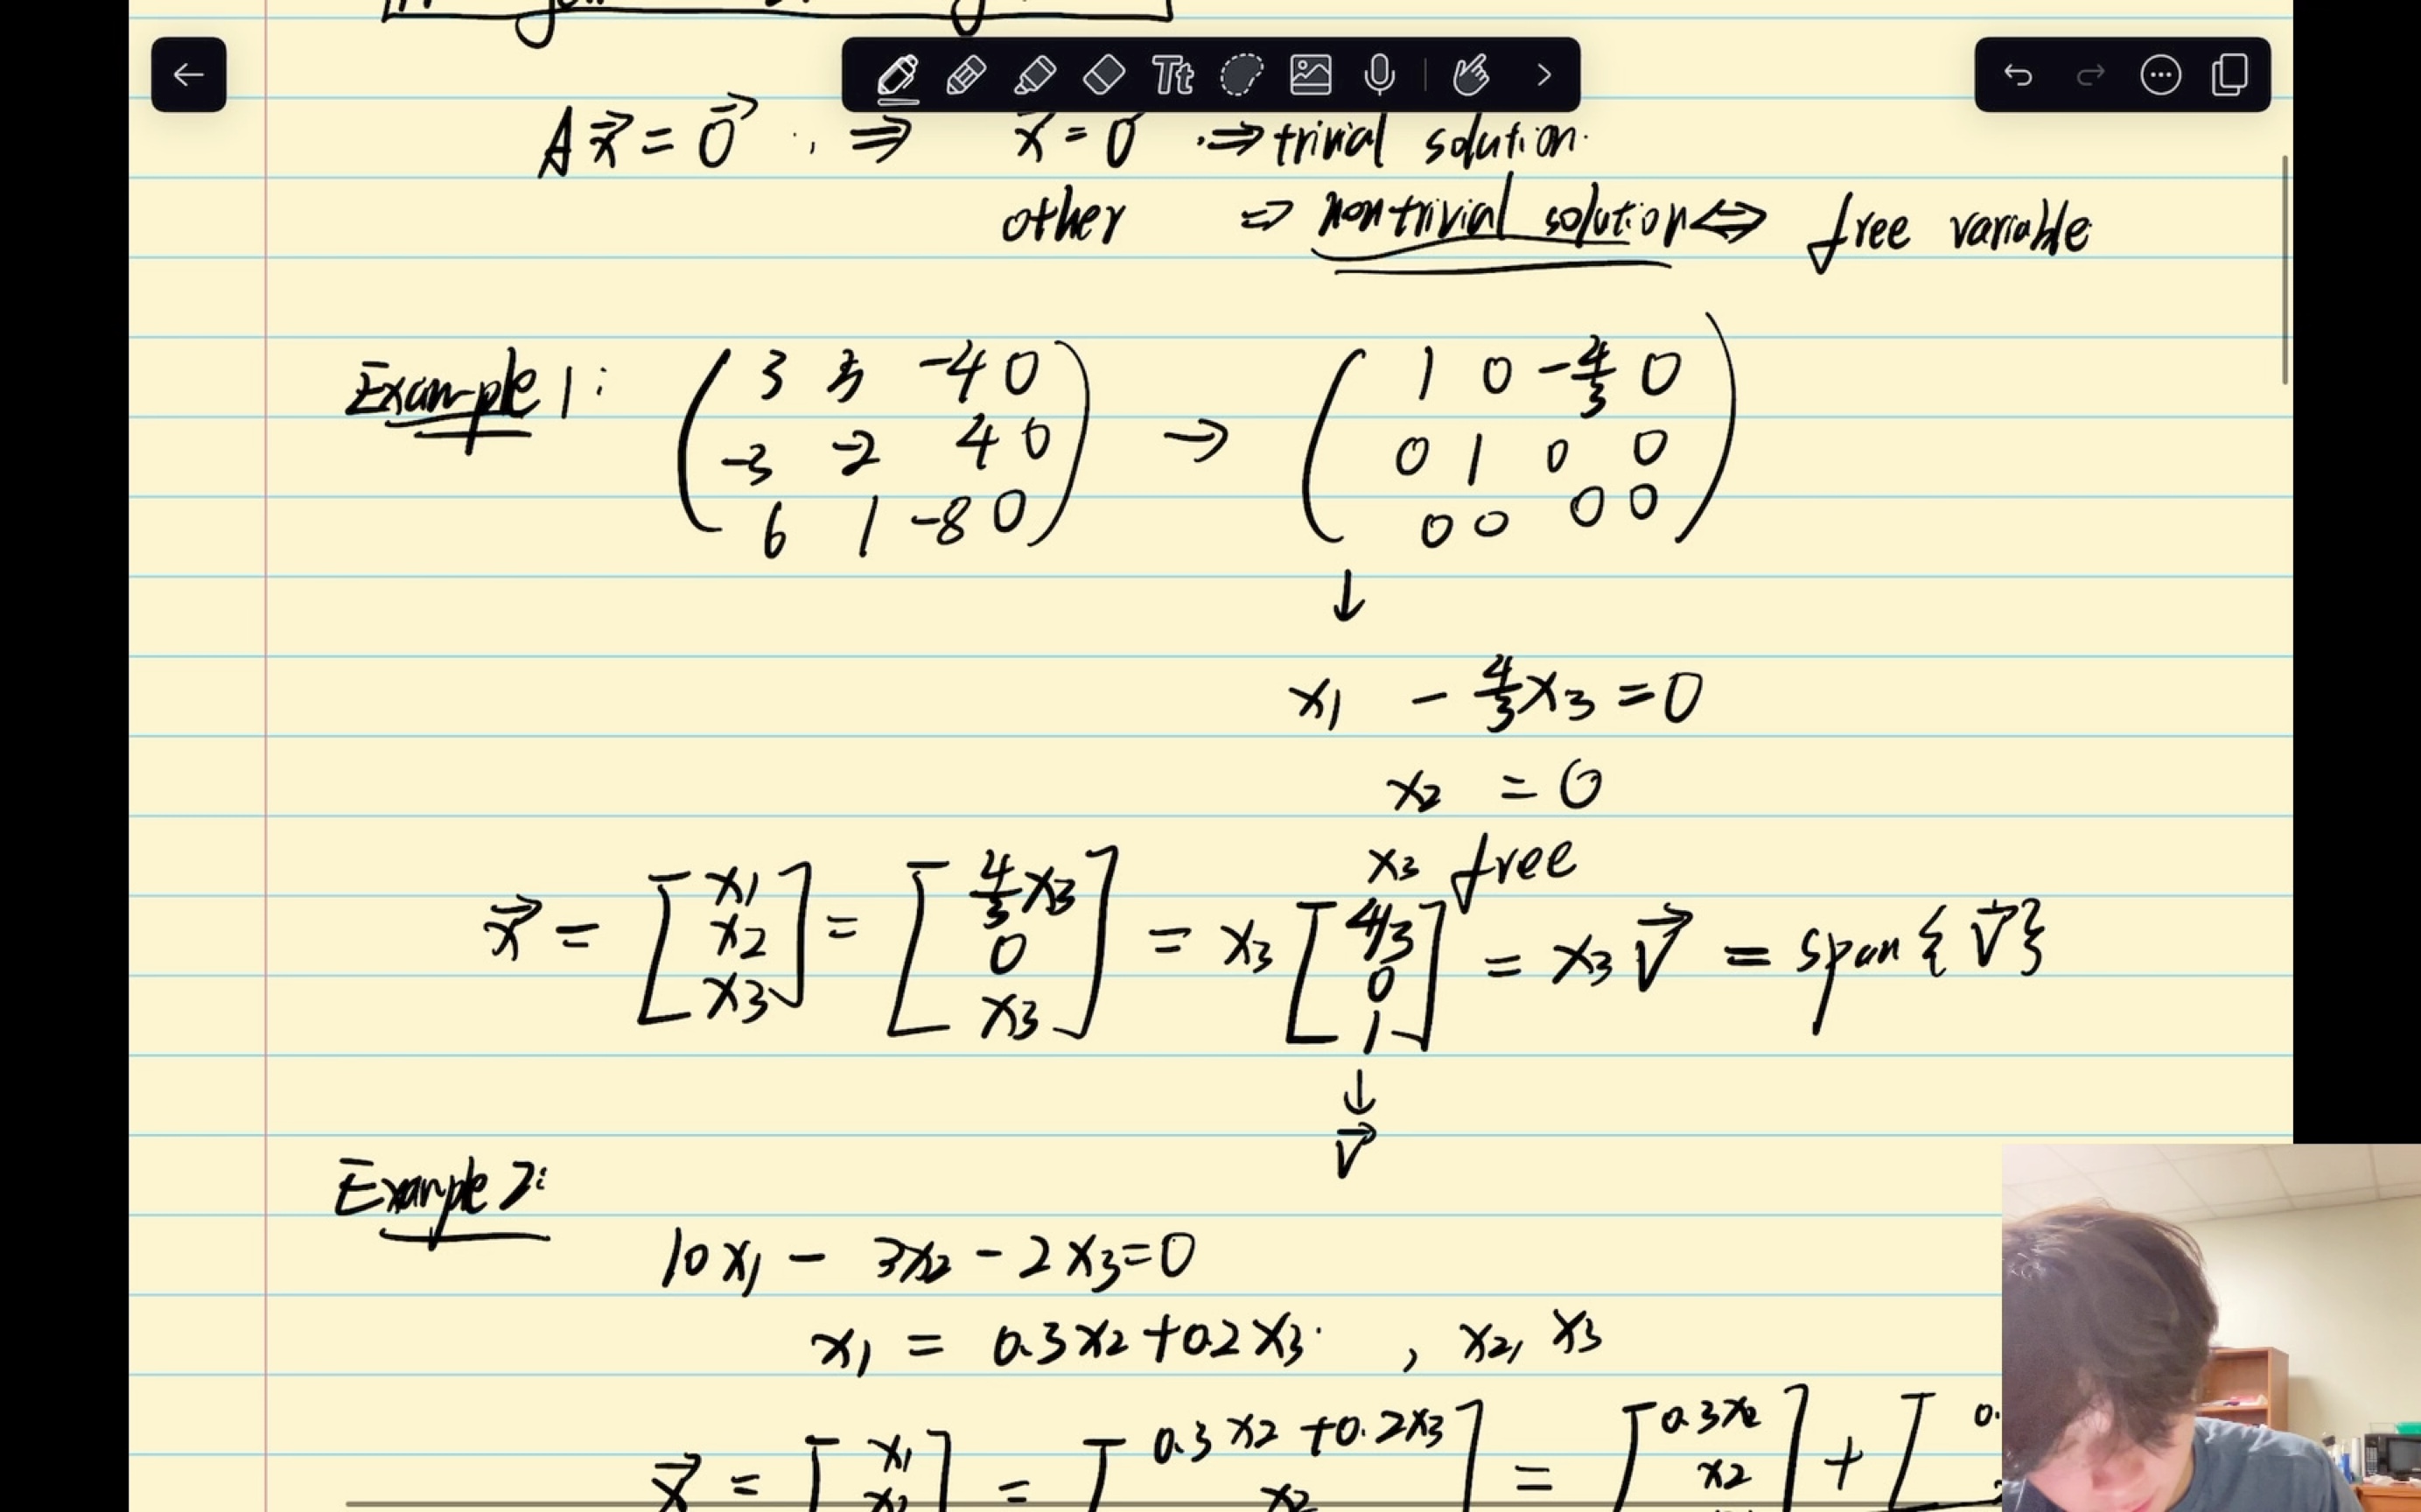 A x⃗ = 0⃗ , ⇒ x⃗ = 0 ⇒ trivial solution.
other ⇒ nontrivial solution ⇔ free variable
Tt
Example 1:
( 3 5 -4 0 ) → ( 1 0 -4/3 0 )
( -3 -2 4 0 ) ( 0 1 0 0 )
( 6 1 -8 0 ) ( 0 0 0 0 )
↓
x₁ - 4/3 x₃ = 0
x₂ = 0
x₃ free
x⃗ = [ x₁ x₂ x₃ ] = [ 4/3 x₃ 0 x₃ ] = x₃ [ 4/3 0 1 ] = x₃ v⃗ = span { v⃗ }
↓
v⃗
Example 2:
10x₁ - 3x₂ - 2x₃ = 0
x₁ = 0.3x₂ + 0.2x₃ , x₂, x₃
x⃗ = [ x₁ x₂ ] = [ 0.3x₂ + 0.2x₃ x₂ ] = [ 0.3x₂ x₂ ] + [ 0.